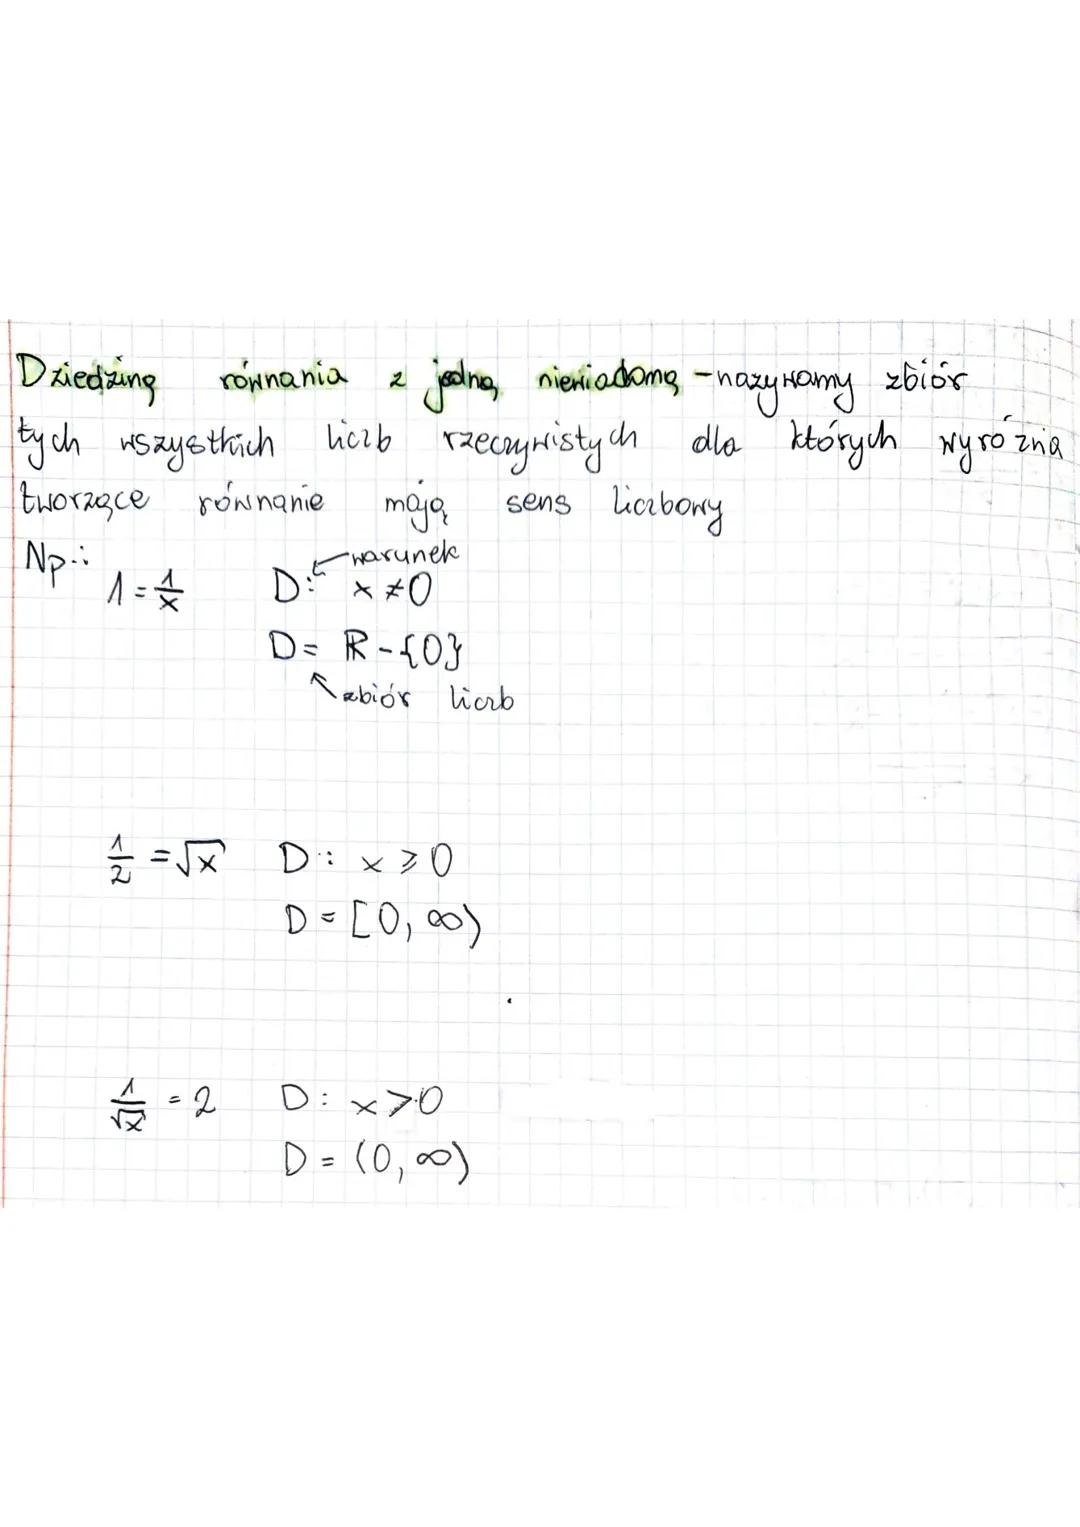 Dziedziną równania z jedną niewiadomą - nazywamy zbiór
tych wszystkich liczb rzeczywistych dla których wyrożnia
tworzące równanie mają sens liczbowy
Np.:
warunek
1 = 1/x D: x ≠ 0
D = ℝ - {0}
zbiór liczb
1/2 = √x D: x ⩾ 0
D = [0, ∞)
1/√x = 2 D: x > 0
D = (0, ∞)